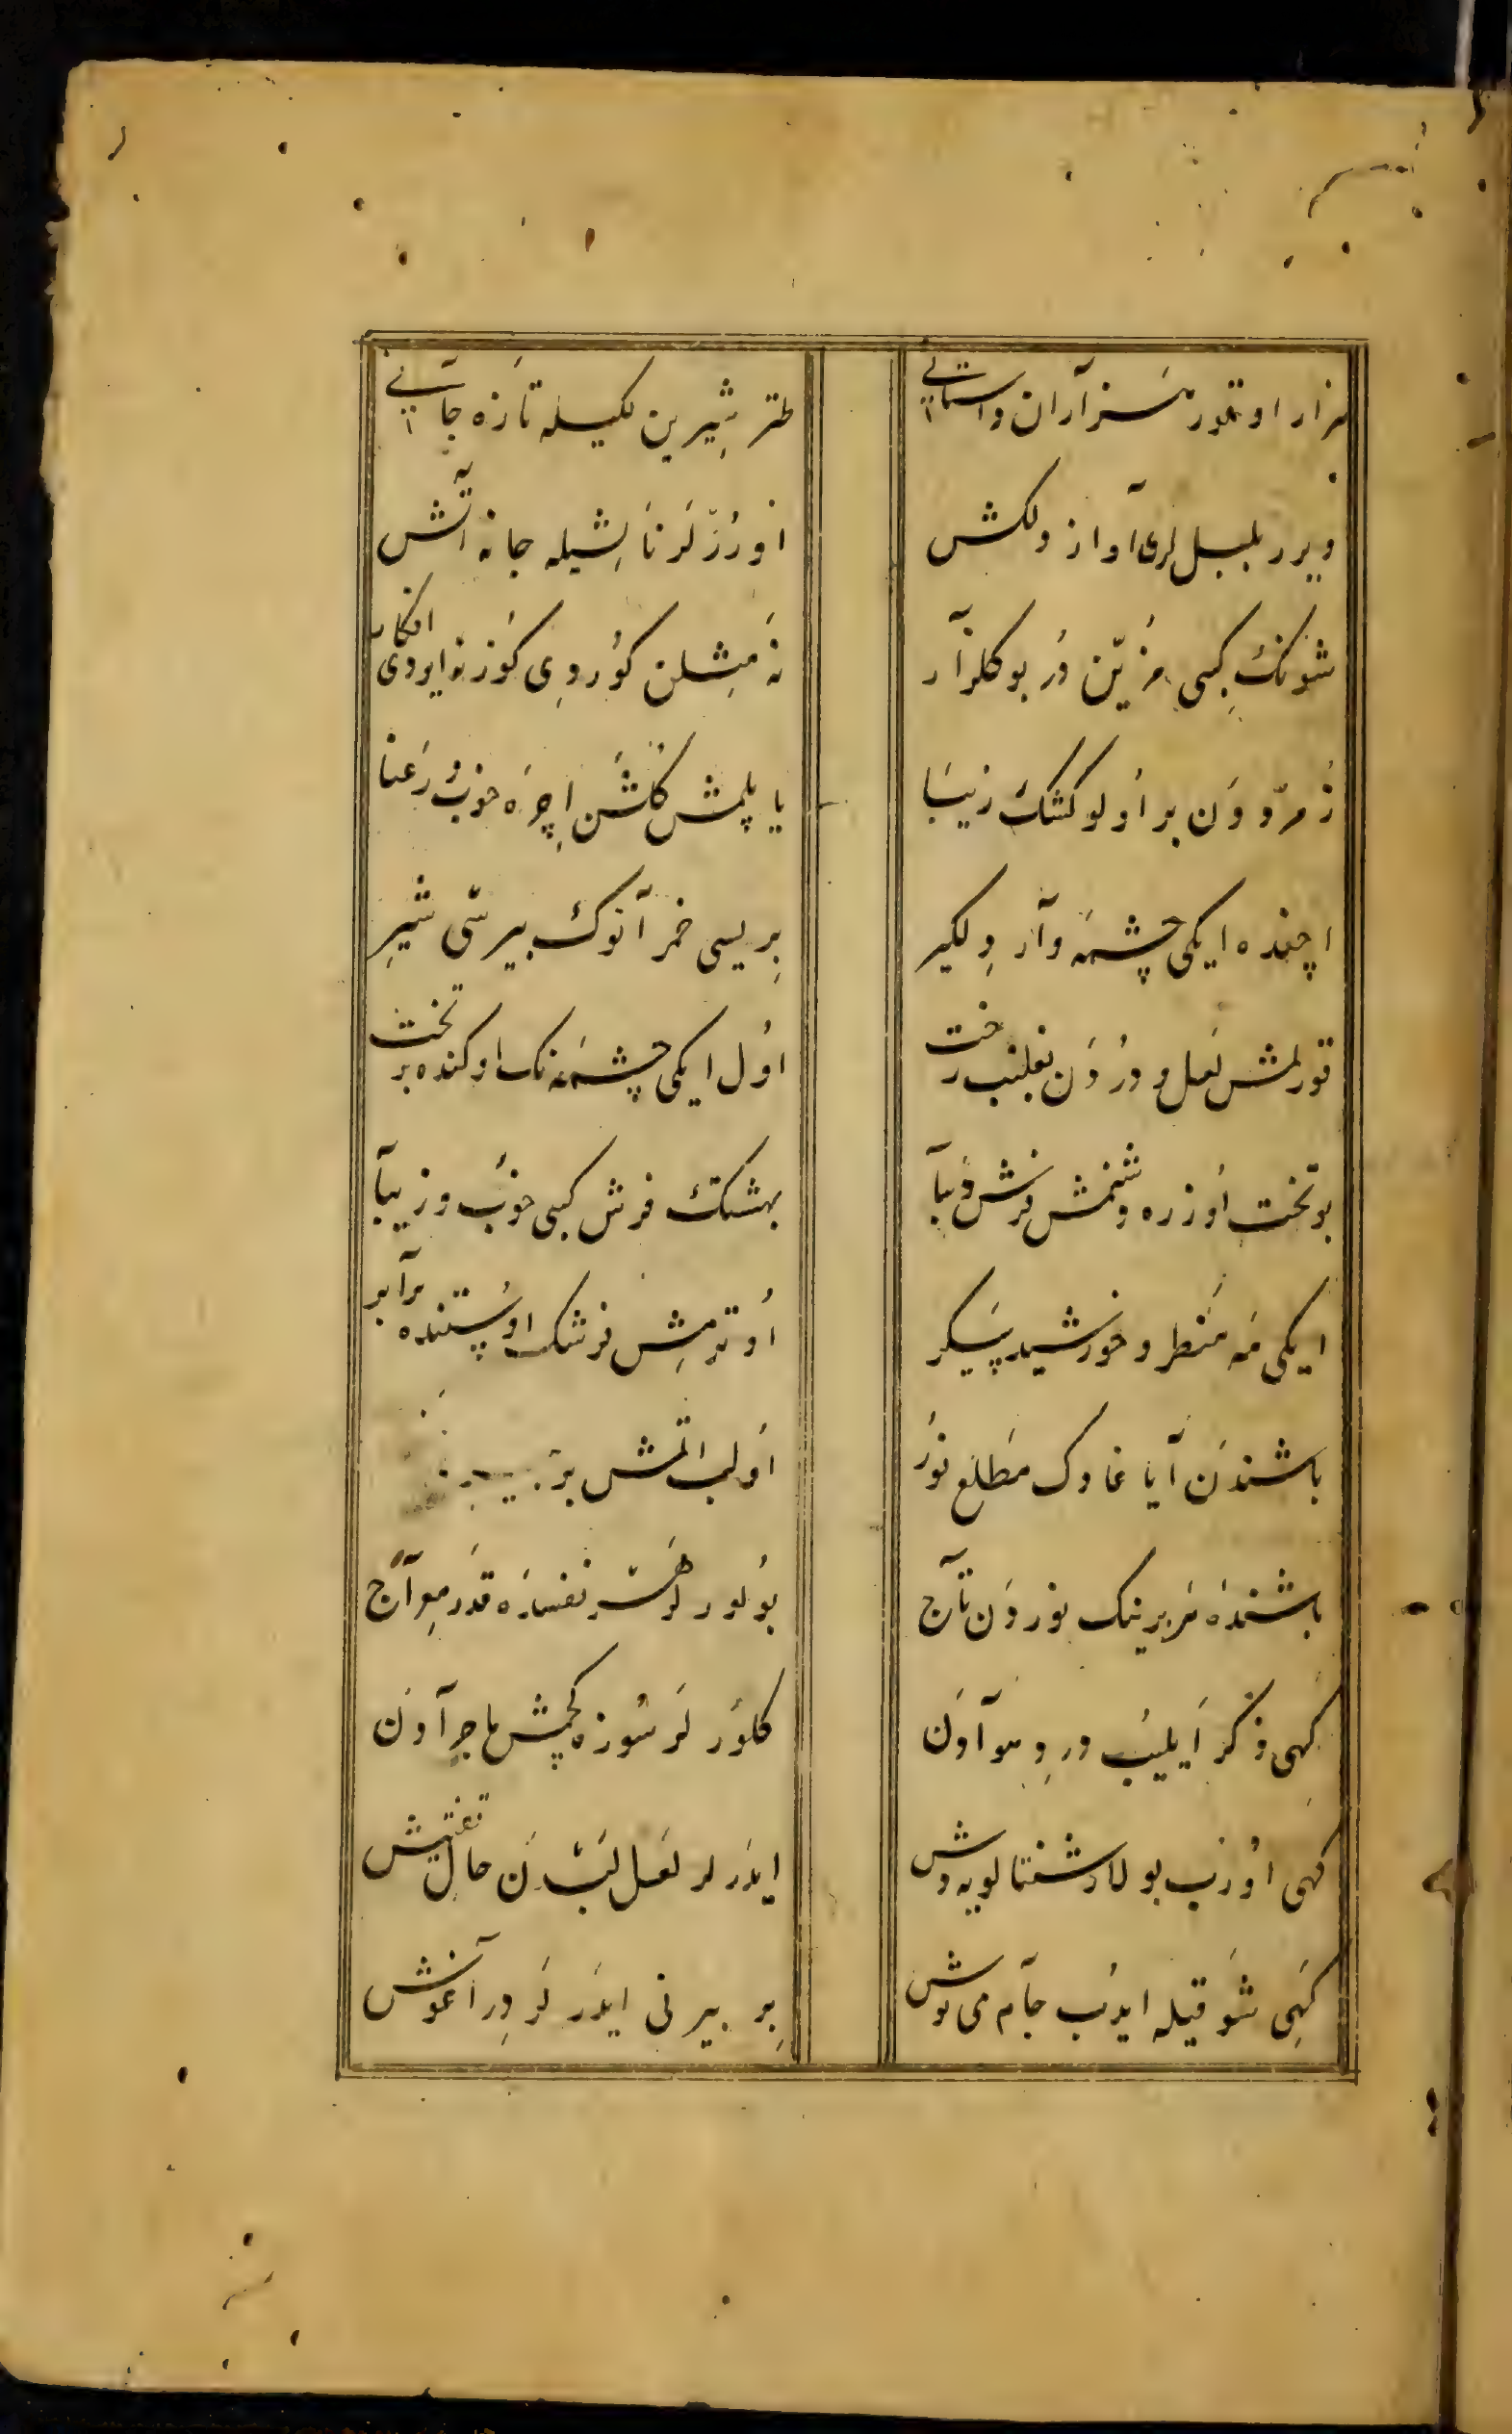 هزار اوتور هزاران داستانی طتر شیرین لکیله تازه جانی
ویرر بلبل لری آواز دلکش اوررلر نالشیله جانه آتش
شونک کبی مزین در بو کلزار نه مثلن کوردی کوز نه ایردی افکار
زمرددن بر اولو کشک زیبا یاپلمش کلشن اچره خوب و رعنا
اچنده ایکی چشمه وار دلکیر بریسی خمر آنوک بیرسی شیر
قورلمش لعل و دردن بغلنب رخت اول ایکی چشمه نک اوکنده بر تخت
بو تخت اوزره دوشنمش فرش دیبا بهشتک فرش کبی خوب و زیبا
ایکی مه منظر و خورشید پیکر اوترمش فرشک اوستنده برابر
باشندن آیاغادک مطلع نور اولب اتمش بر
باشنده هر برینک نوردن تاج بولور لر هر نفسده قدر معراج
کهی ذکر ایلیب درد و هوادن کلورلر سوزه کچمش ماجرادن
کهی اوزب بولار شفتالویه دش ایدرلر لعل لبدن حال تفتیش
کهی شوقیله ایدب جام می نوش بر بیرنی ایدرلر در آغوش